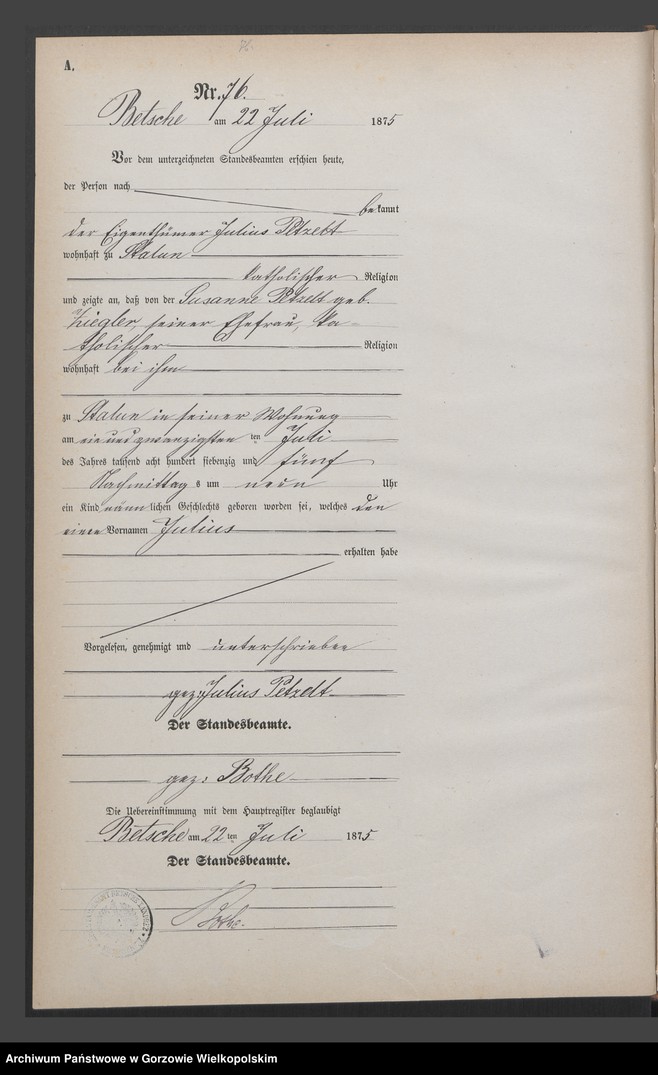 76.
A.
Nr. 76.
Betsche am 22 Juli 1875
Vor dem unterzeichneten Standesbeamten erschien heute,
der Person nach
bekannt
der Eigenthümer Julius Petzelt
wohnhaft zu Stalun
katholischer Religion
und zeigte an, daß von der Susanne Petzelt geb.
Ziegler, seiner Ehefrau, ka-
tholischer Religion
wohnhaft bei ihm
zu Stalun in seiner Wohnung
am ein und zwanzigsten ten Juli
des Jahres tausend acht hundert siebenzig und fünf
Nachmittags um neun Uhr
ein Kind männlichen Geschlechts geboren worden sei, welches den
einen Vornamen Julius
erhalten habe
Vorgelesen, genehmigt und unterschrieben
gez: Julius Petzelt
Der Standesbeamte.
gez: Bothe
Die Uebereinstimmung mit dem Hauptregister beglaubigt
Betsche am 22 ten Juli 1875
Der Standesbeamte.
Bothe.
Archiwum Państwowe w Gorzowie Wielkopolskim